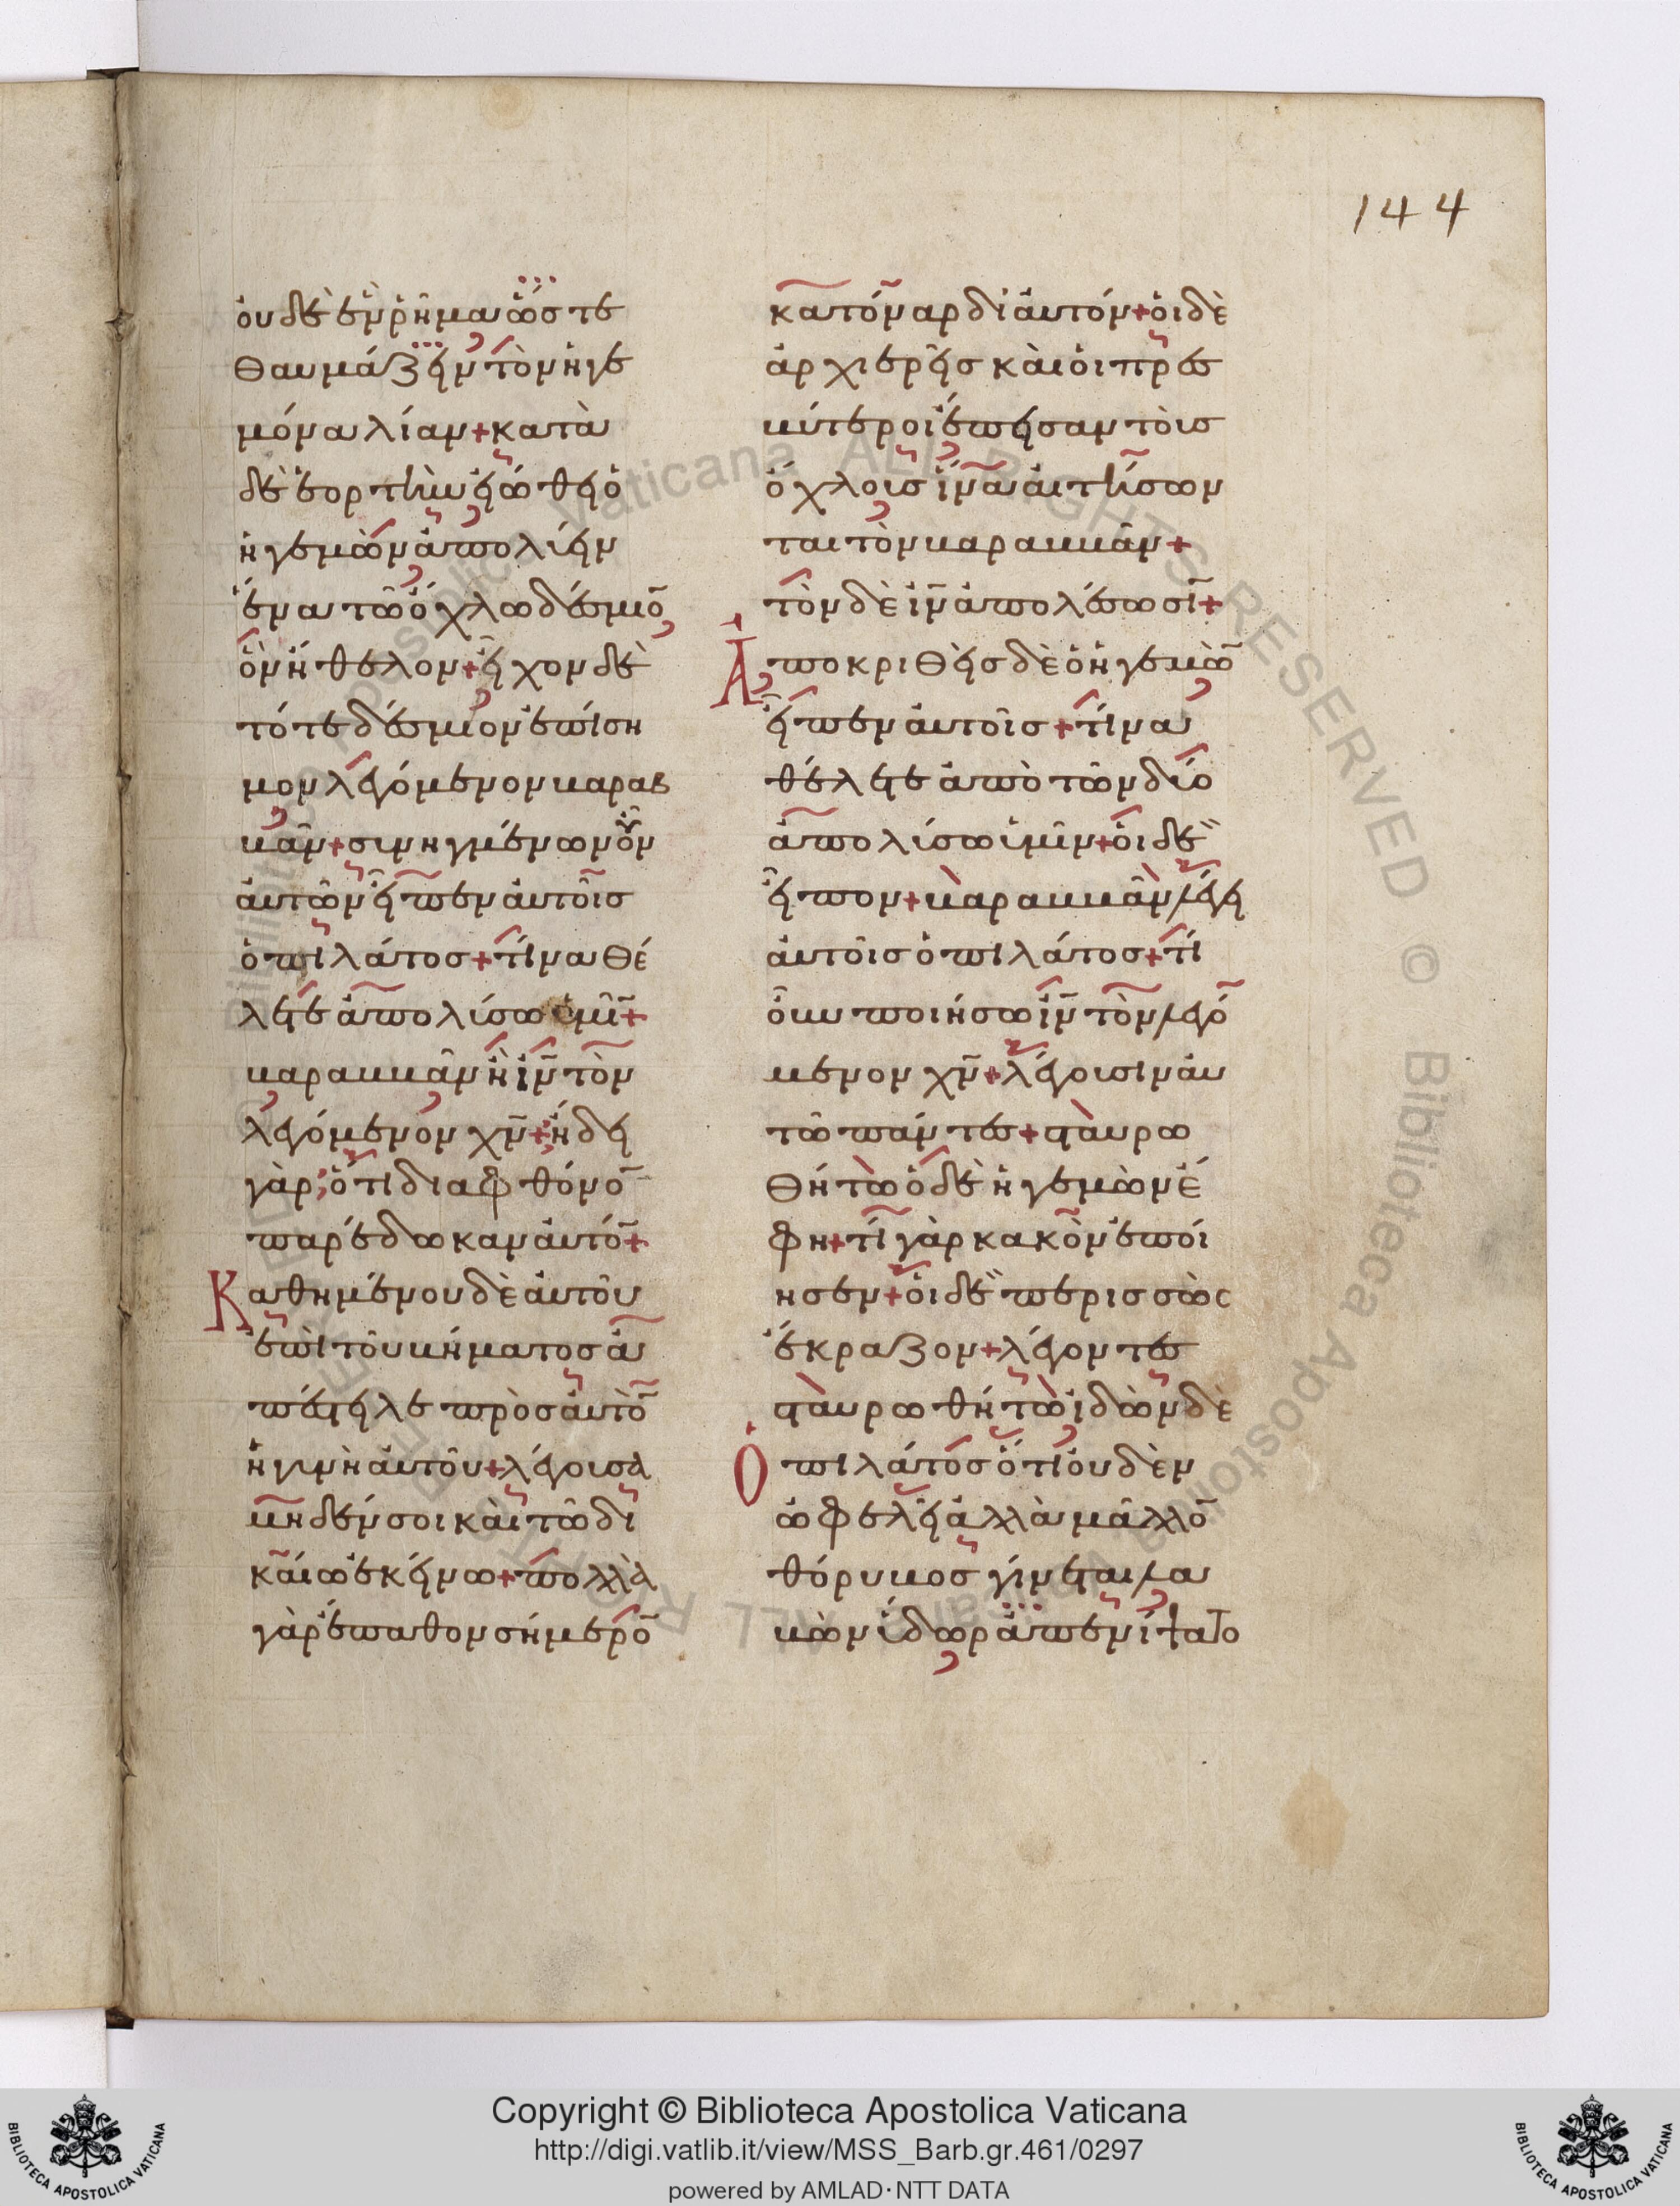 144
ὀυδὲ ἓν ῥῆμα ὥστε
θαυμάζειν τὸν ἡγε
μόνα λίαν + κατὰ
δὲ ἑορτὴν εἰώθει ὁ
ἡγεμὼν ἀπολύειν
ἕνα τῶ ὄχλω δέσμιο̅
ὃν ἤθελον + εἶχον δὲ
τότε δέσμιον ἐπίση
μον λεγόμενον βαραβ
βᾶν + συνηγμένων οὖν
ἀυτῶν εἶπεν ἀυτοῖς
ὁ πιλάτος + τίνα θέ
λετε ἀπολύσω ὑμῖ̅ +
βαραββᾶν ἢ ι̅ν̅ τὸν
λεγόμενον χ̅ν̅ + ἤδει
γὰρ ὅτι διὰ φθόνο̅
παρέδωκαν ἀυτό̅ +
Καθημένου δὲ ἀυτοῦ
ἐπὶ τοῦ βήματος ἀ
πέστειλε πρὸς ἀυτὸ̅
ἡ γυνὴ ἀυτοῦ + λέγουσα
μηδέν σοι κὰι τῶ δι
κάιω ἐκείνω + πολλὰ
γὰρ ἔπαθον σήμερο̅
κατ' ὄναρ δι' ἀυτόν + ὁι δὲ
ἀρχιερεῖς κὰι ὁι πρεσ
βύτεροι ἔπεισαν τοὺς
ὄχλους ἵνα ἀιτήσων
ται τὸν βαραββᾶν +
τὸν δὲ ι̅ν̅ ἀπολέσωσι̅ +
Ἀποκριθεὶς δὲ ὁ ἡγεμὼ̅
εἶπεν ἀυτοῖς + τίνα
θέλετε ἀπὸ τῶν δύο
ἀπολύσω ὑμῖν + ὁι δὲ
εἶπον + βαραββᾶν λέγει
ἀυτοῖς ὁ πιλάτος + τί
οὖν ποιήσω ι̅ν̅ τὸν λεγό
μενον χ̅ν̅ + λέγουσιν ἀυ
τῶ πάντες + σταυρω
θήτω ὁ δὲ ἡγεμὼν ἔ
φη + τί γὰρ κακὸν ἐποί
ησεν + ὁι δὲ περισσῶς
ἔκραζον + λέγοντες
σταυρωθήτω ἰδὼν δὲ
Ὁ πιλάτος ὅτι ὀυδὲν
ὠφελεῖ ἀλλὰ μᾶλλο̅
θόρυβος γίνεται λα
βὼν ὕδωρ ἀπενίψατο
Copyright © Biblioteca Apostolica Vaticana
http://digi.vatlib.it/view/MSS_Barb.gr.461/0297
powered by AMLAD·NTT DATA